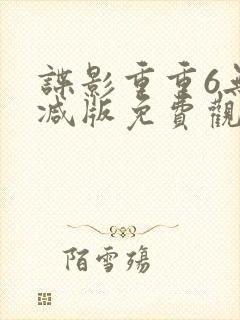 諜影重重6無
減版免費觀
陌雪殤